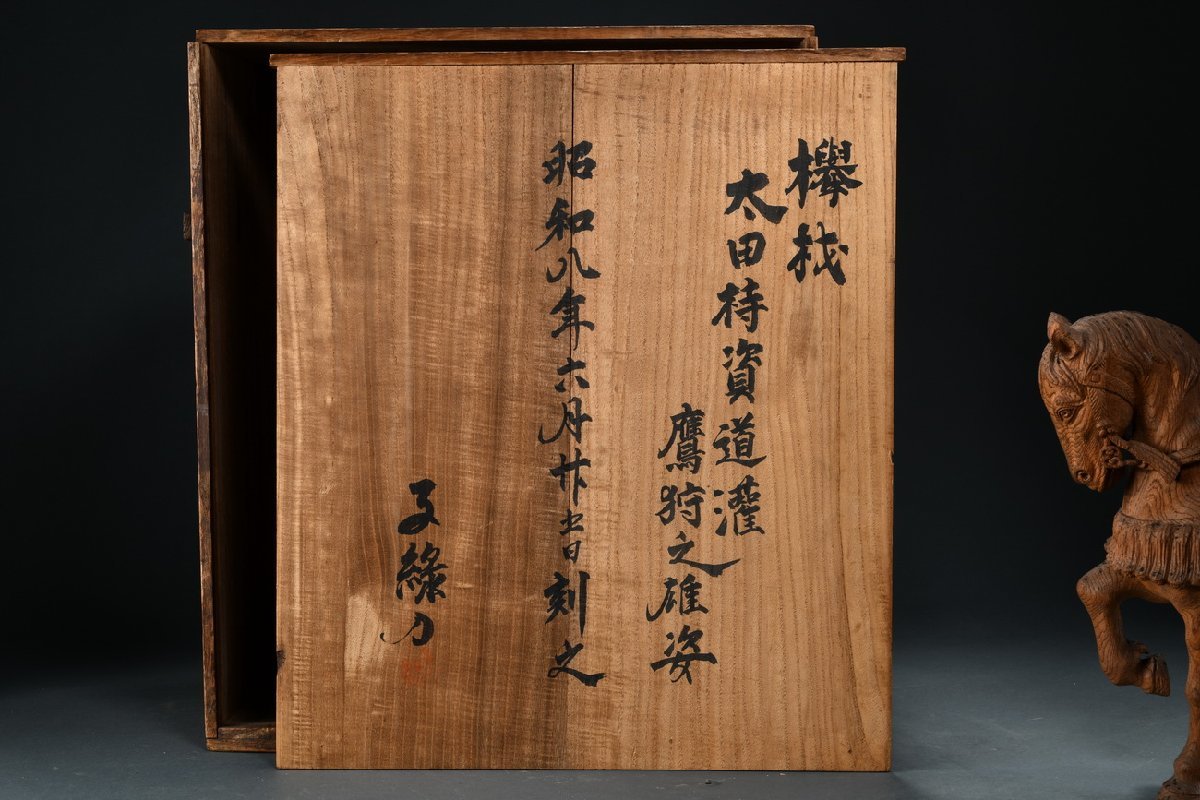 欅材
太田持資道灌
鷹狩之雄姿
昭和八年六月廿五日刻之
緑刀